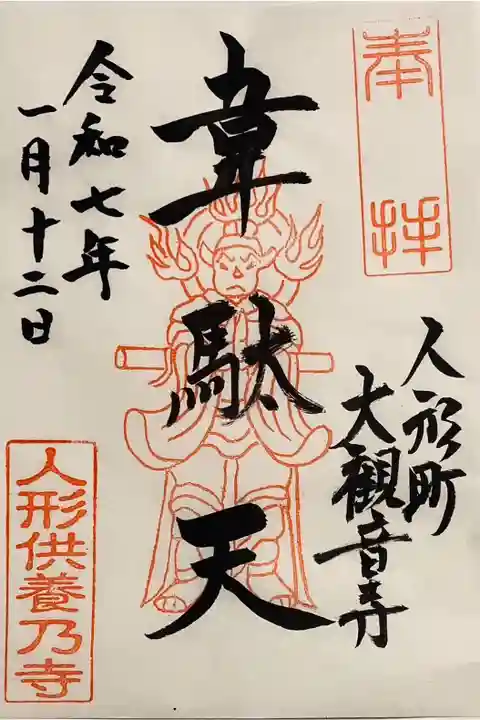 奉拝
人形町
大観音寺
韋駄天
令和七年
一月十二日
人形供養乃寺